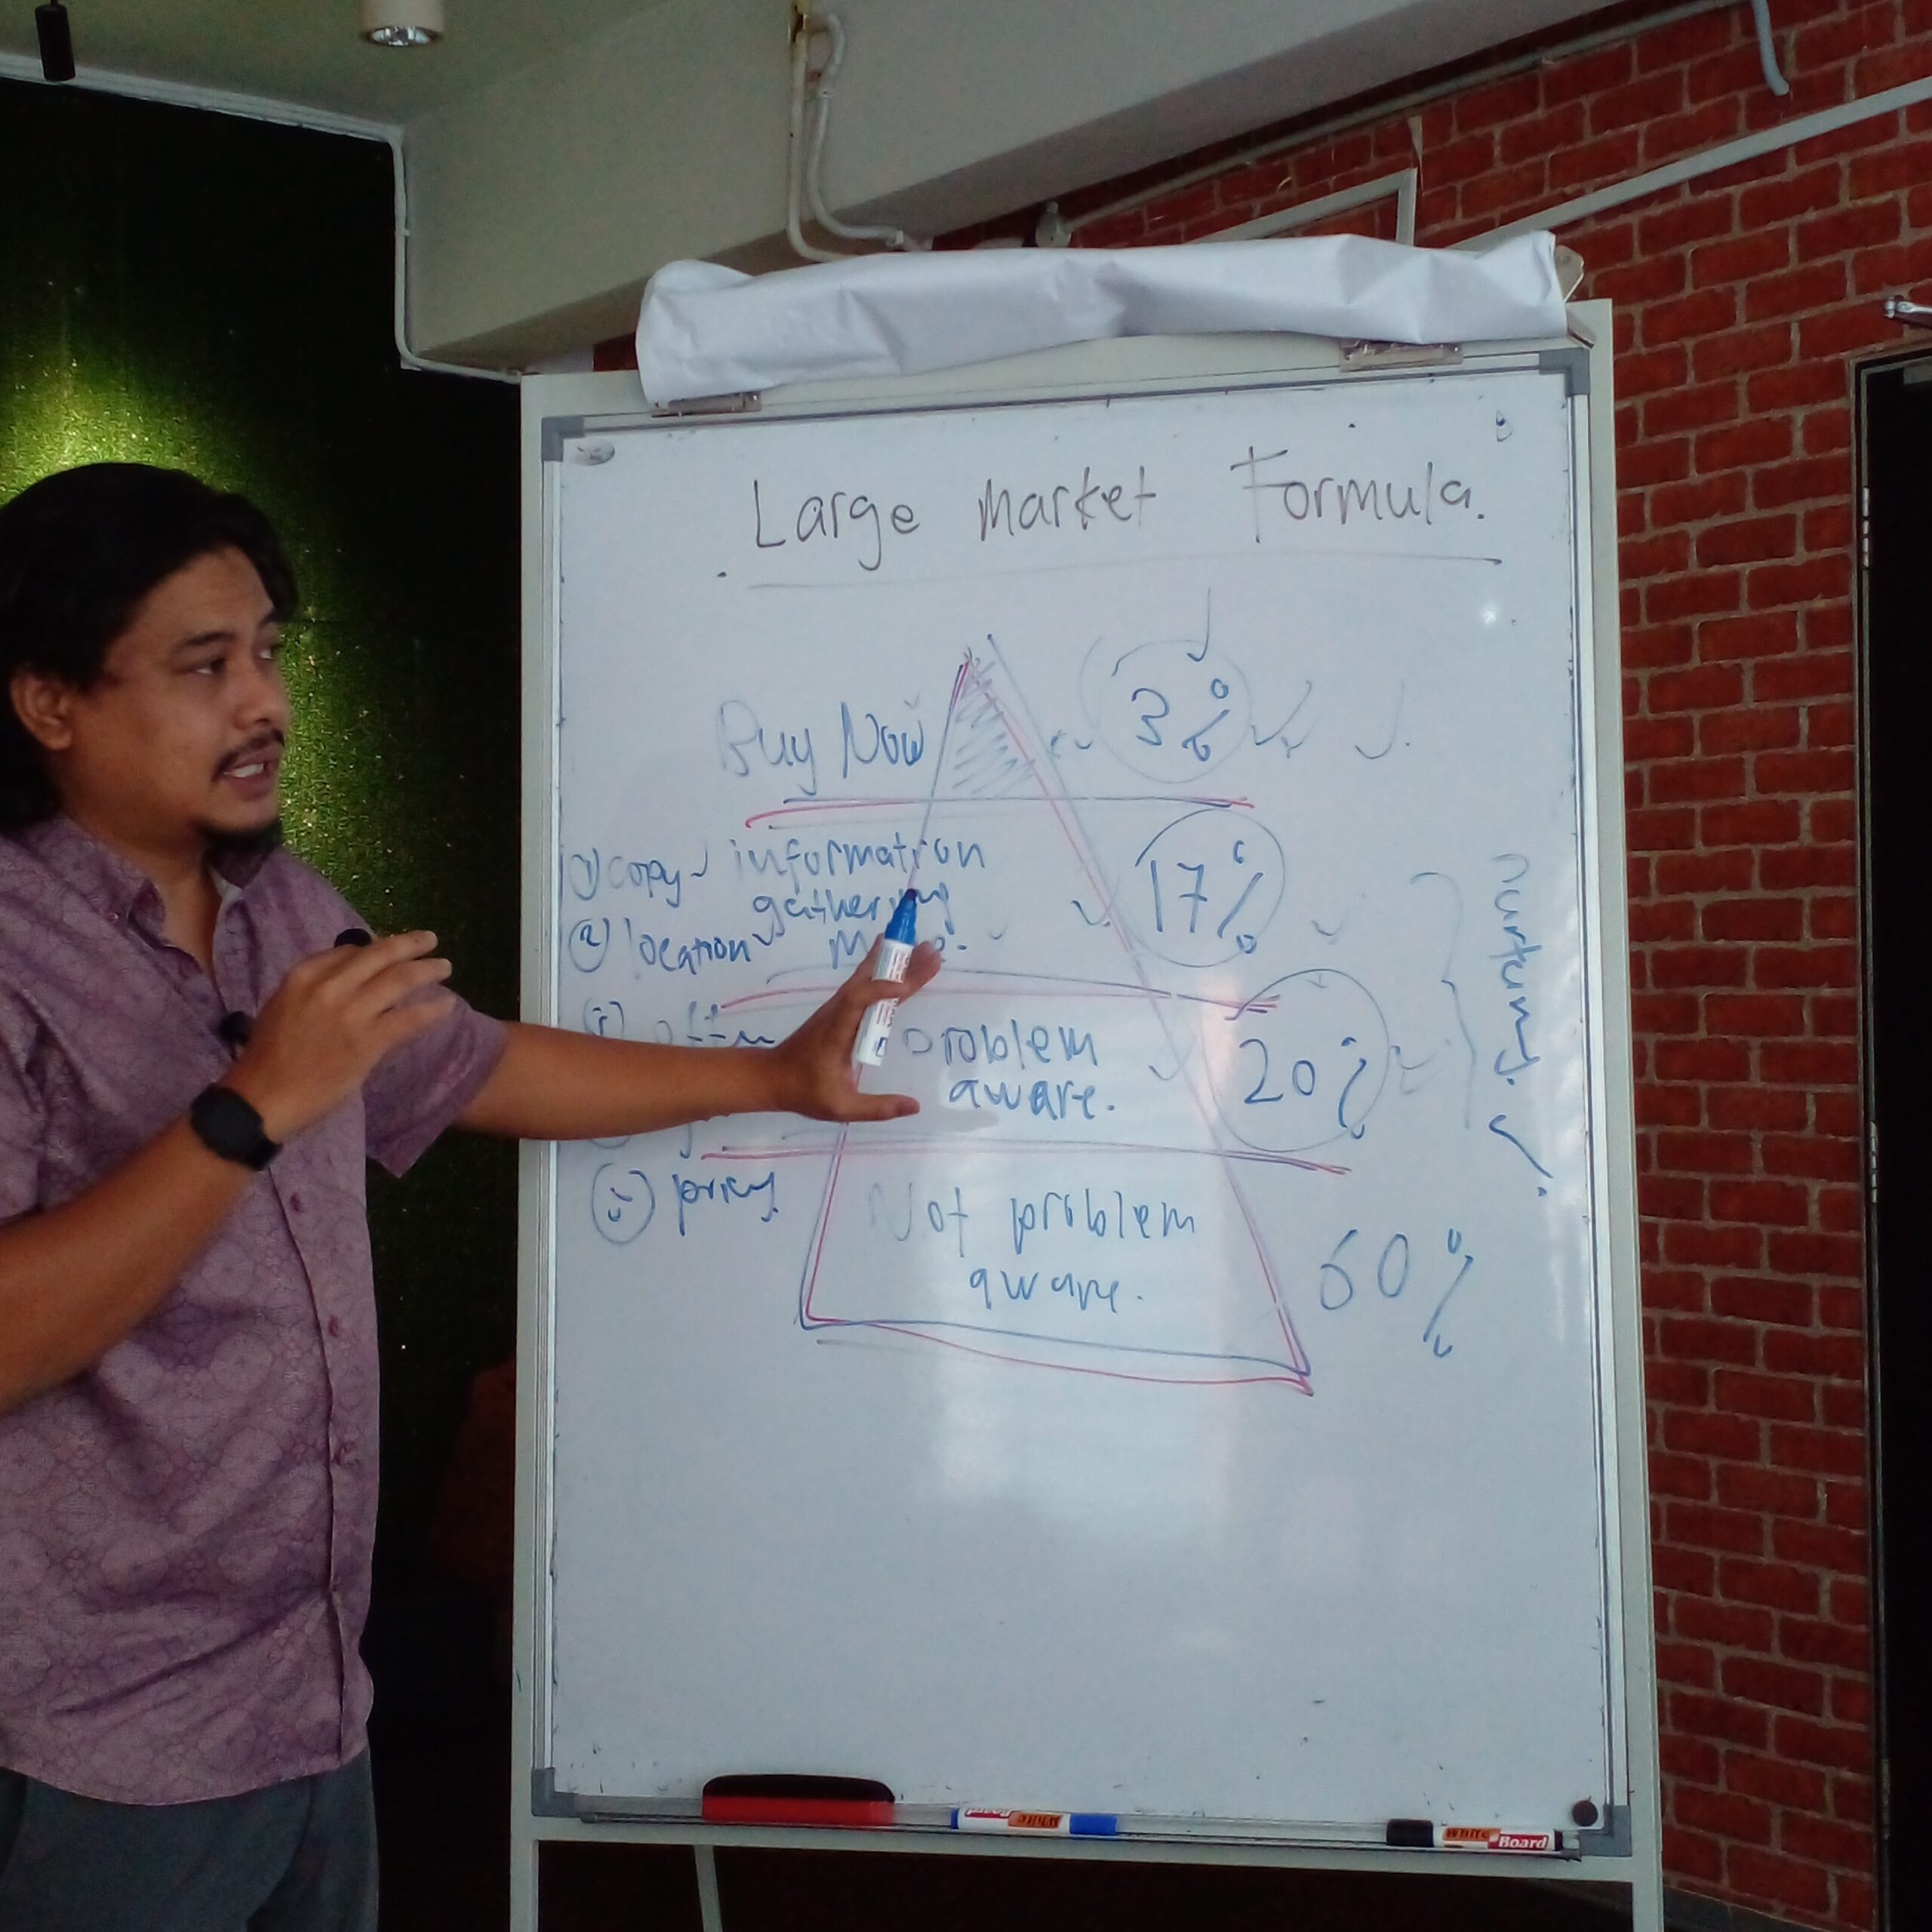 Large Market Formula.
Buy Now 3%
1) copy information
gathering 17%
2) location
problem
aware. 20%
nurturing.
pricy.
Not problem
aware. 60%
White Board